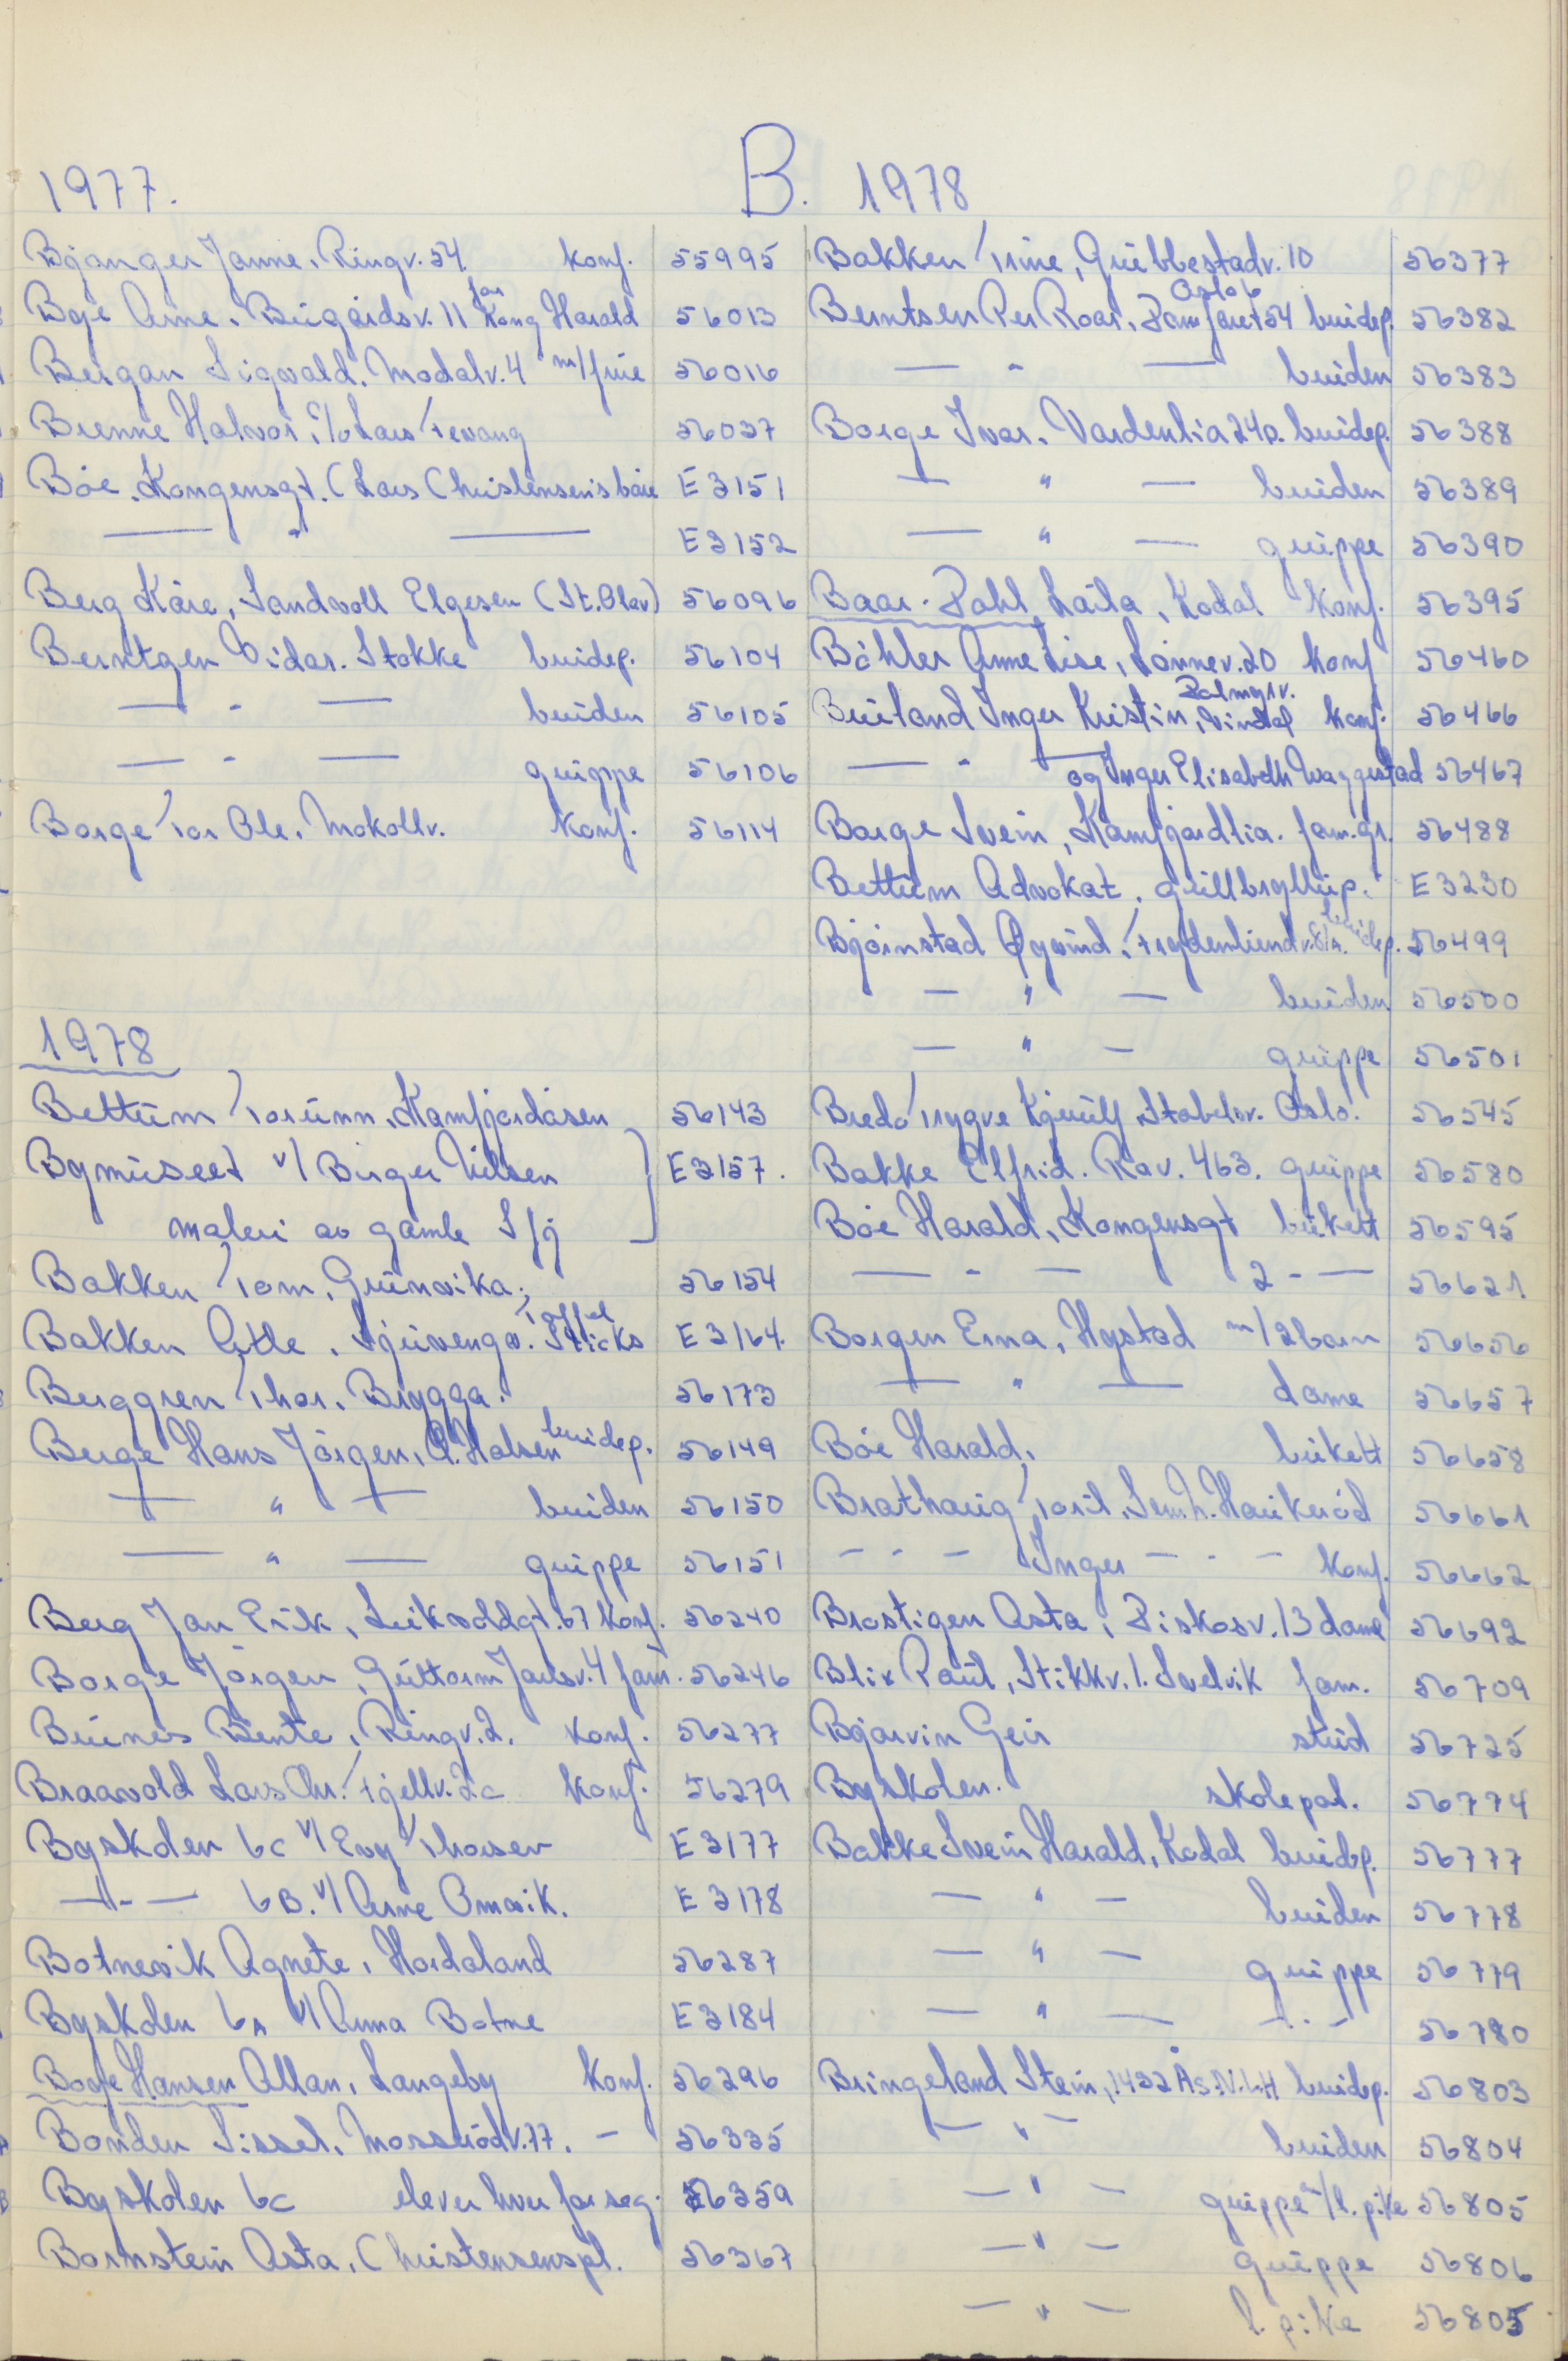 B.
1977.
Bjanger Janne, Ringv. 54. konf. 55995
Bge Arne. Bugårdsv. 11 for Kong Harald 56013
Bergan Sigvald. Modalv. 4 m/frue 56016
Brenne Halvor, c/o Lars Tevang 56037
Bøe. Kongensgt. (Lars Christensens båre E3151
— " — E3152
Berg Kåre, Sandvoll Elgesen (St. Olav) 56096
Berntzen Vidar. Stokke brudep. 56104
— " — bruden 56105
— " — gruppe 56106
Borge Tor Ole. Mokollv. konf. 56114
1978
Bettum Torunn, Kamfjordåsen 56143
Bymuseet v/ Birger Nilsen E3157.
maleri av gamle S/fj
Bakken Tom, Grünvika, 56154
Bakken Atle. Sjuvengv. Toffel Sticks E3164.
Berggren Thor. Brygga. 56173
Berge Hans Jörgen, Ø. Halsen brudep. 56149
— " — bruden 56150
— " — gruppe 56151
Berg Jan Erik, Leikvoldgt. 67 konf. 56240
Borge Jörgen, Guttorm Jarlsv. 4 fam. 56246
Buines Bente, Ringv. 2. konf. 56277
Braavold Lars Chr. Fjellv. 2c konf. 56279
Byskolen 6c v/ Evy Thorsen E3177
— " — 6B. v/ Arne Omvik. E3178
Botnevik Agnete, Hordaland 56287
Byskolen 6A v/ Anna Botne E3184
Boge Hansen Allan, Langeby konf. 56296
Bonden Sissel, Mosserödv. 77. - 56335
Byskolen 6c elever hver for seg. 56359
Bornstein Asta, Christensenspl. 56367
1978
Bakken Trine, Grubbestadv. 10 56377
Berntsen Per Roar, Damfaret 54 Oslo 6 brudep. 56382
— " — bruden 56383
Borge Ivar. Vardenlia 24 D. brudep. 56388
— " — bruden 56389
— " — gruppe 56390
Baar-Dahl Laila, Kodal konf. 56395
Böhler Anne Lise, Lönnev. 20 konf 56460
Builand Inger Kristin, Palmgrv. Vindal konf. 56466
— " — og Inger Elisabeth Waggestad 56467
Borge Svein, Kamfjordlia. fam.gr. 56488
Bettum Advokat. gullbryllup. E3230
Bjørnstad Øyvind, Frydenlundv. 81A. brudep. 56499
— " — bruden 56500
— " — gruppe 56501
Bredo Trygve Kjuulf, Stabelsv. Oslo. 56545
Bakke Elfrid. Rav. 463. gruppe 56580
Bøe Harald, Kongensgt bukett 56595
— " — 2 - — 56621.
Borgen Erna, Hystad m/2 barn 56656
— " — dame 56657
Bøe Harald, bukett 56658
Brathaug Toril, Semh. Haukeröd 56661
- - - Inger - - - konf. 56662
Brostigen Asta, Fiskosv. 13 dame 56692
Blix Paul, Stikkv. 1. Svelvik fam. 56709
Bjarvin Geir stud 56725
Byskolen. skolepat. 56774
Bakke Svein Harald, Kodal brudep. 56777
— " — bruden 56778
— " — gruppe 56779
— " — - " - 56780
Bringeland Stein, 1432 Ås. N.L.H brudep. 56803
— " — bruden 56804
— " — gruppe m/l. pike 56805
— " — gruppe 56806
— " — l. pike 56805